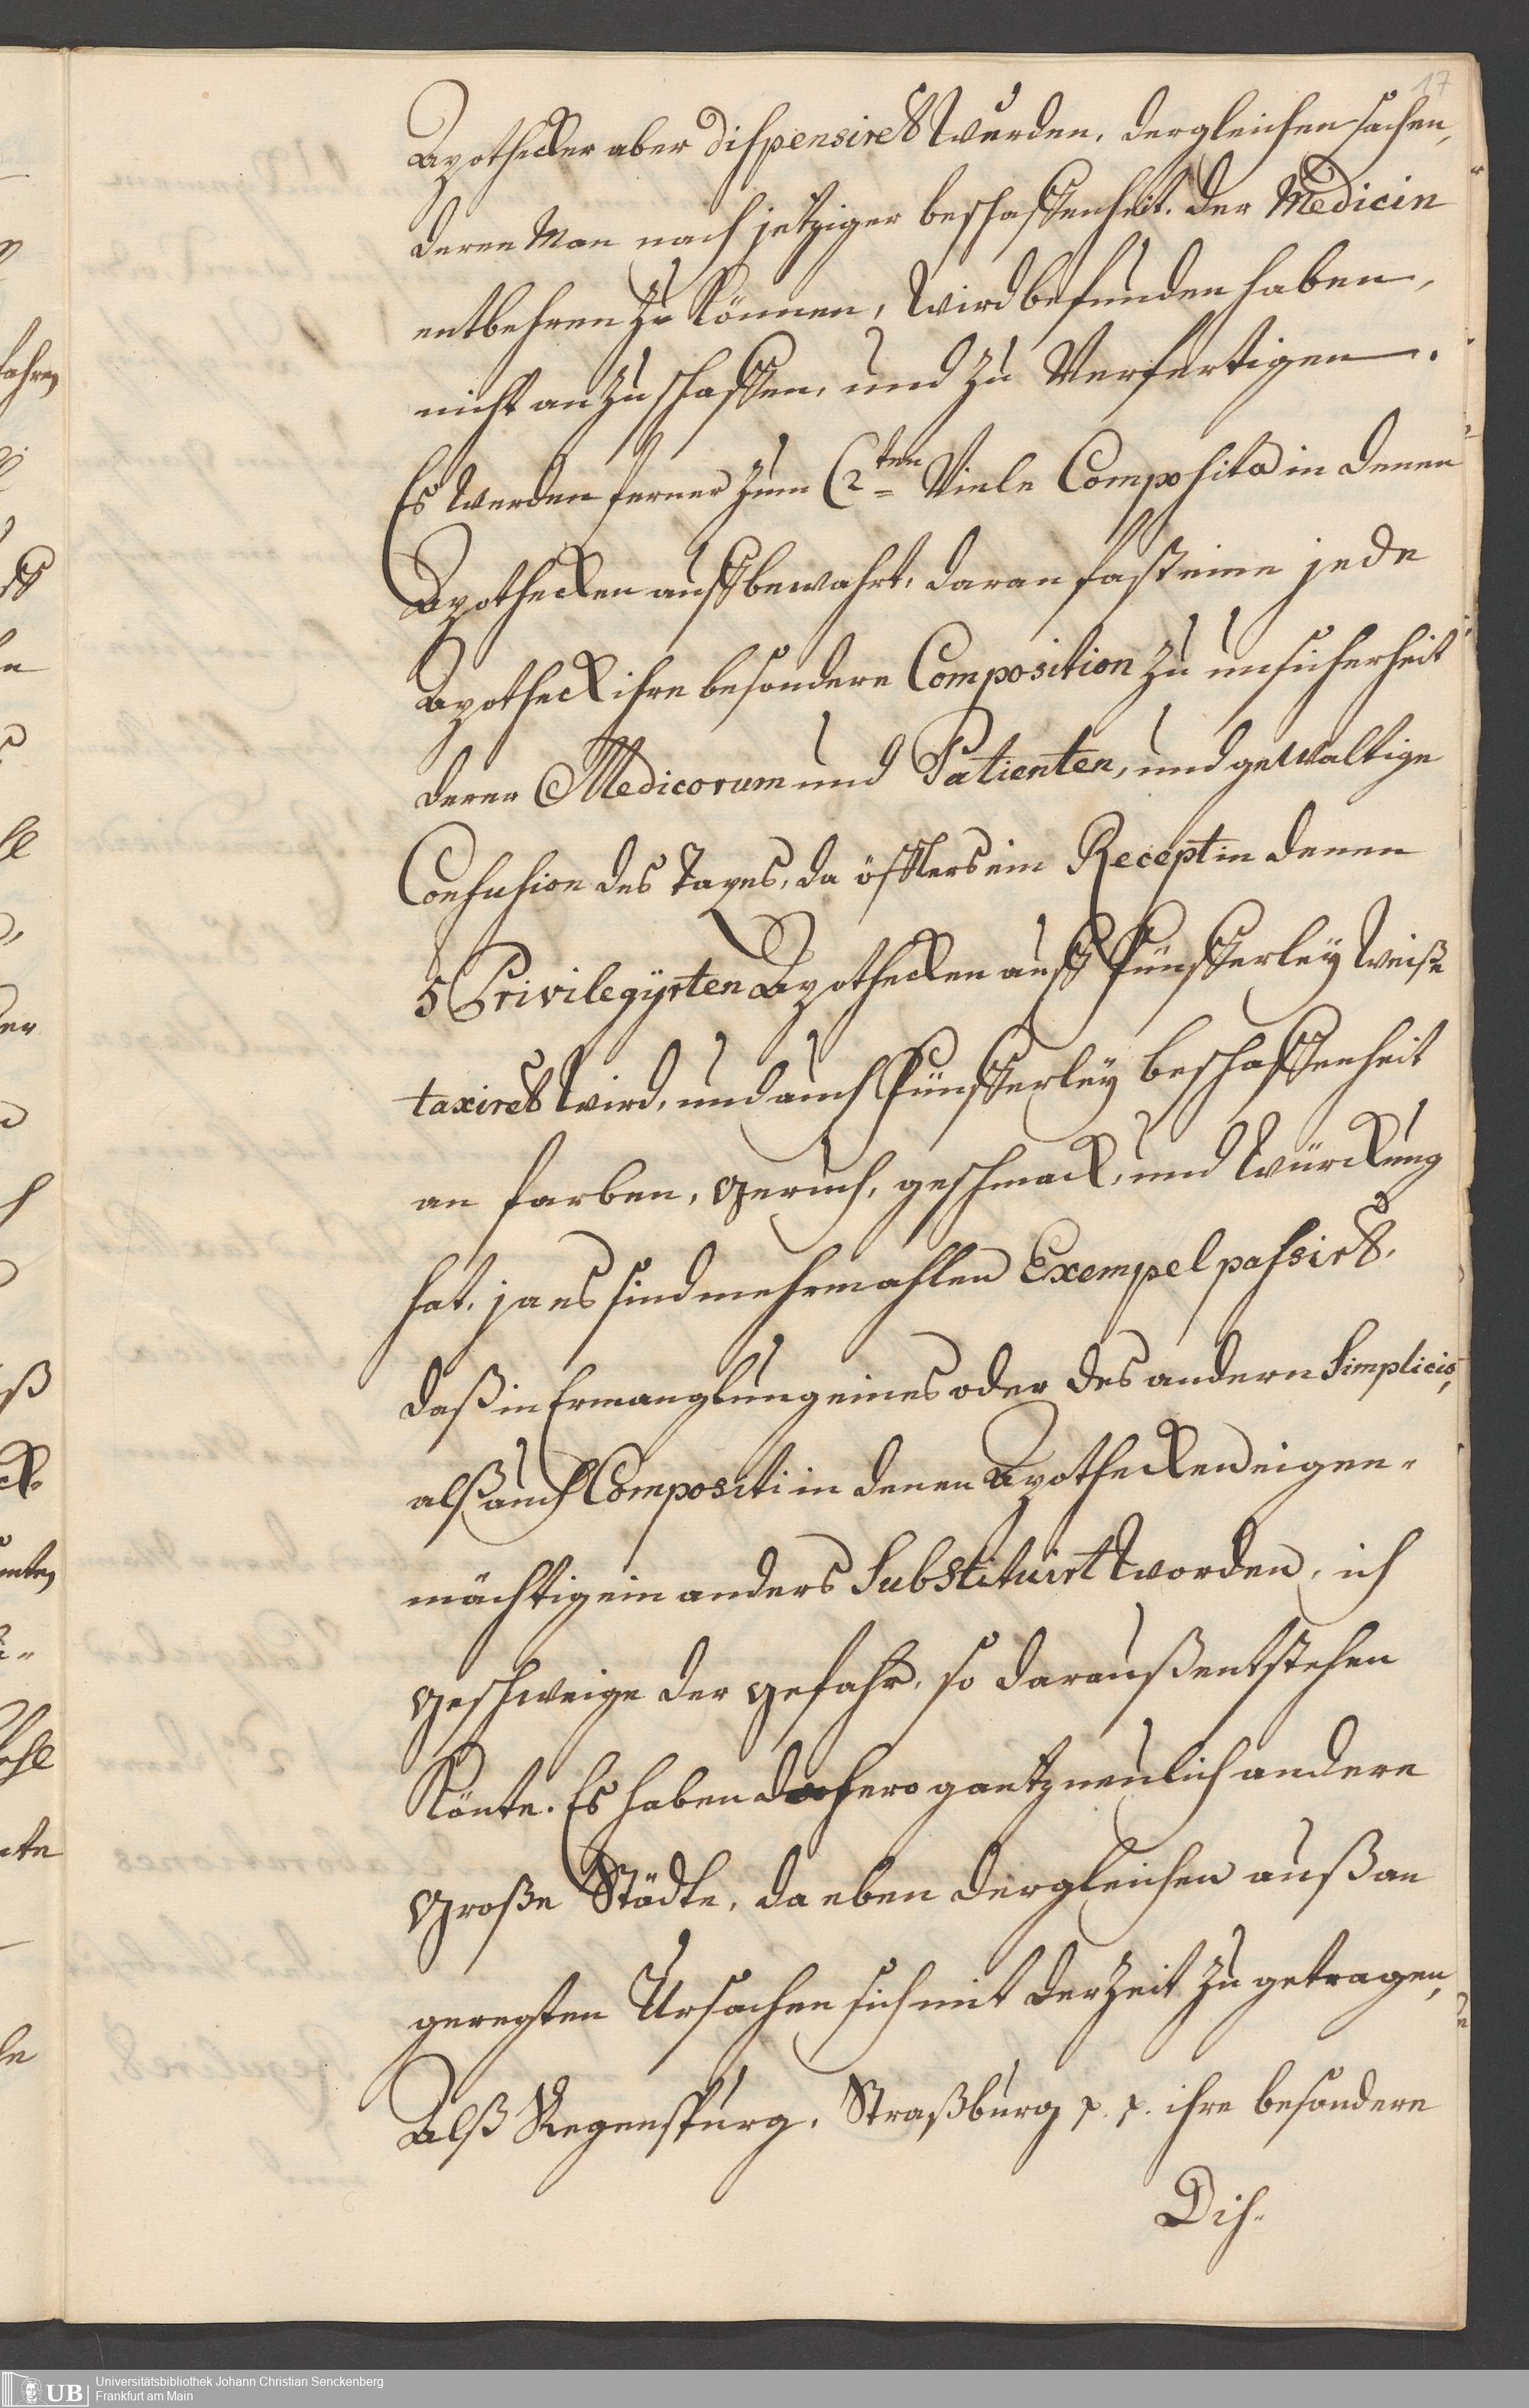 17
Apothecker aber dispensiret wurden, dergleichen sachen,
deren Man nach jetziger beschaffenheit der Medicin
entbehren zu können, wird befunden haben,
nicht anzuschaffen, und zu Verfertigen.
Es werden ferner zum (2ten= Viele Composita in denen
Apothecken auffbewahrt, daran fast eine jede
Apotheck ihre besondere Composition zu unsicherheit
derer Medicorum und Patienten, und gewaltige
Confusion des Taxes, da öffters ein Recept in denen
5 Privilegijrten Apothecken auff fünfferleÿ Weiße
taxiret wird, und auch fünfferleÿ beschaffenheit
an farben, geruch, geschmack, und würckung
hat, ja es sind mehrmahlen Exempel passirt,
daß in Ermanglung eines oder des andern Simplicis,
alß auch Compositi in denen Apothecken eigen-
mächtig ein anders Substituirt worden, ich
geschweige der gefahr, so darauß entstehen
könte. Es haben dahero gantz neulich andere
große Städte, da eben dergleichen auß an
geregten Ursachen sich mit der Zeit zu getragen,
Alß Regenspurg, Straßburg p. p. ihre besondere
Dis-
UB Universitätsbibliothek Johann Christian Senckenberg
Frankfurt am Main